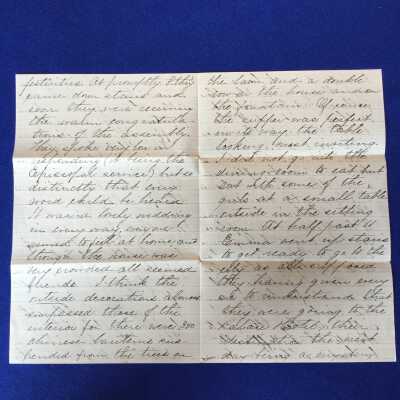 festivities. At promptly 8 they
came down stairs and
soon they were receiving
the warm congratula-
tions of the assembly.
They spoke very low in
responding (it being the
Episcopal service) but so
distinctly that every
word could be heard.
It was a lovely wedding
in every way, everyone
seemed to feel at home, and
though the house was
very crowded all seemed
friends. I think the
outside decorations almost
surpassed those of the
interior for there were 300
chinese lanterns sus-
pended from the trees on
the lawn and a double
row on the house and on
the fountain. Of course
the supper was perfect
in its way, the table
looking most inviting.
I did not go into the
dining room to eat but
sat with some of the
girls at a small table
outside in the sitting
room. At half past 11
Emma went up stairs
to get ready to go to the
city as all supposed
they having given every
one to understand that
they were going to the
Palace Hotel, their
the next
day being a mystery